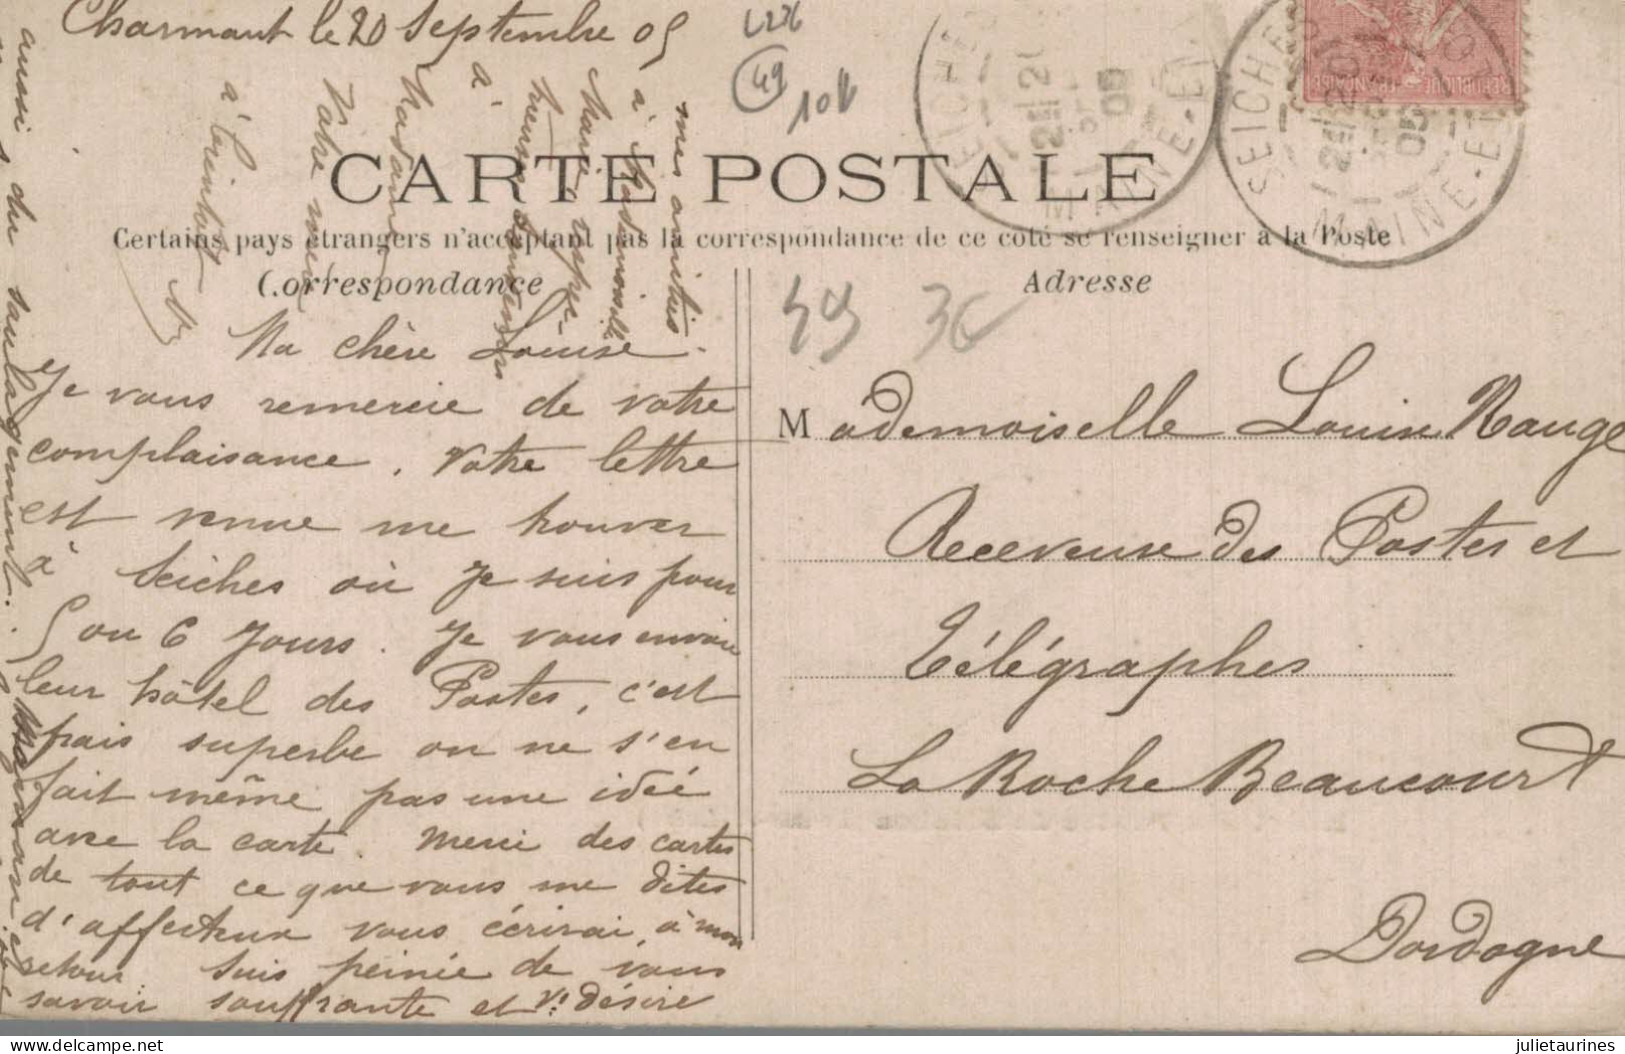 Charmant le 20 Septembre 05
49
CARTE POSTALE
Certains pays étrangers n'acceptant pas la correspondance de ce côté se renseigner à la Poste
Correspondance
Adresse
SEICHES
MAINE-ET-
REPUBLIQUE FRANCAISE
49 3c
Ma chère Louise.
Je vous remercie de votre
complaisance. Votre lettre
est venue me trouver
à Seiches où je suis pour
5 ou 6 jours. Je vous envoie
leur hôtel des Postes, c'est
frais superbe on ne s'en
fait même pas une idée
avec la carte. Merci des cartes
de tout ce que vous me dites
d'affectueux vous écrirai, à mon
retour. Suis peinée de vous
savoir souffrante et vs désire
aussi du soulagement.
Maman
à
Madame
Votre mère
mes amitiés
à Mademoiselle
Marie, respec-
Mademoiselle Louise Rauge
Receveuse des Postes et
Télégraphes
La Roche Beaucourt
Dordogne
julietaurines
delcampe.net